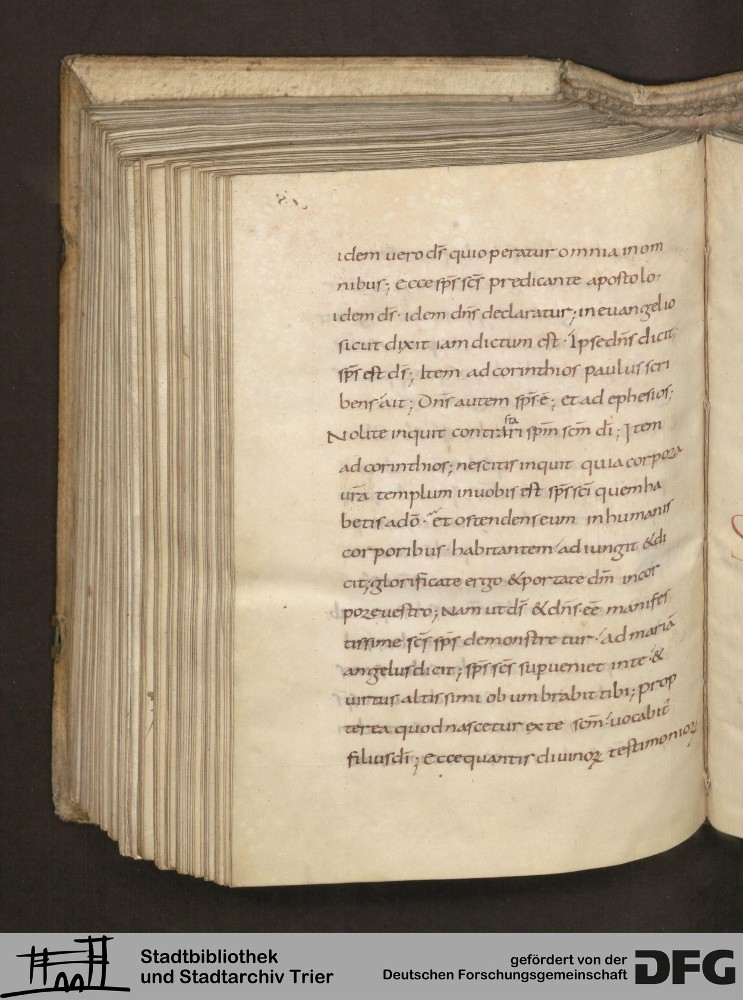 idem uero ds̄ qui operatur omnia in om
nibus; Ecce sp̄s sc̄s predicante apostolo·
idem ds̄· idem dn̄s declaratur; in euangelio
sicut dixit iam dictum est· Ipse dn̄s dicit,
sp̄s est ds̄; Item ad corinthios paulus scri
bens ait; Dn̄s autem sp̄s ē; et ad ephesios;
Nolite inquit contrari sp̄m sc̄m dī; Item
sta
ad corinthios; nescitis inquit quia corpora
ur̄a templum in uobis est sp̄s sc̄i quem ha
betis a dō· et ostendens eum in humanis
corporibus habitantem· adiungit & di
cit; glorificate ergo & portate dm̄ in cor
pore uestro; Nam ut ds̄ & dn̄s· eē manifes
tissime sc̄s sp̄s demonstretur· ad mariā
angelus dicit; sp̄s sc̄s supueniet in te· &
uirtus altissimi obumbrabit tibi; prop
terea quod nascetur ex te sc̄m· uocabit̄
filius dī; Ecce quantis diuinoꝝ testimonioꝝ
Stadtbibliothek
und Stadtarchiv Trier
gefördert von der
Deutschen Forschungsgemeinschaft
DFG